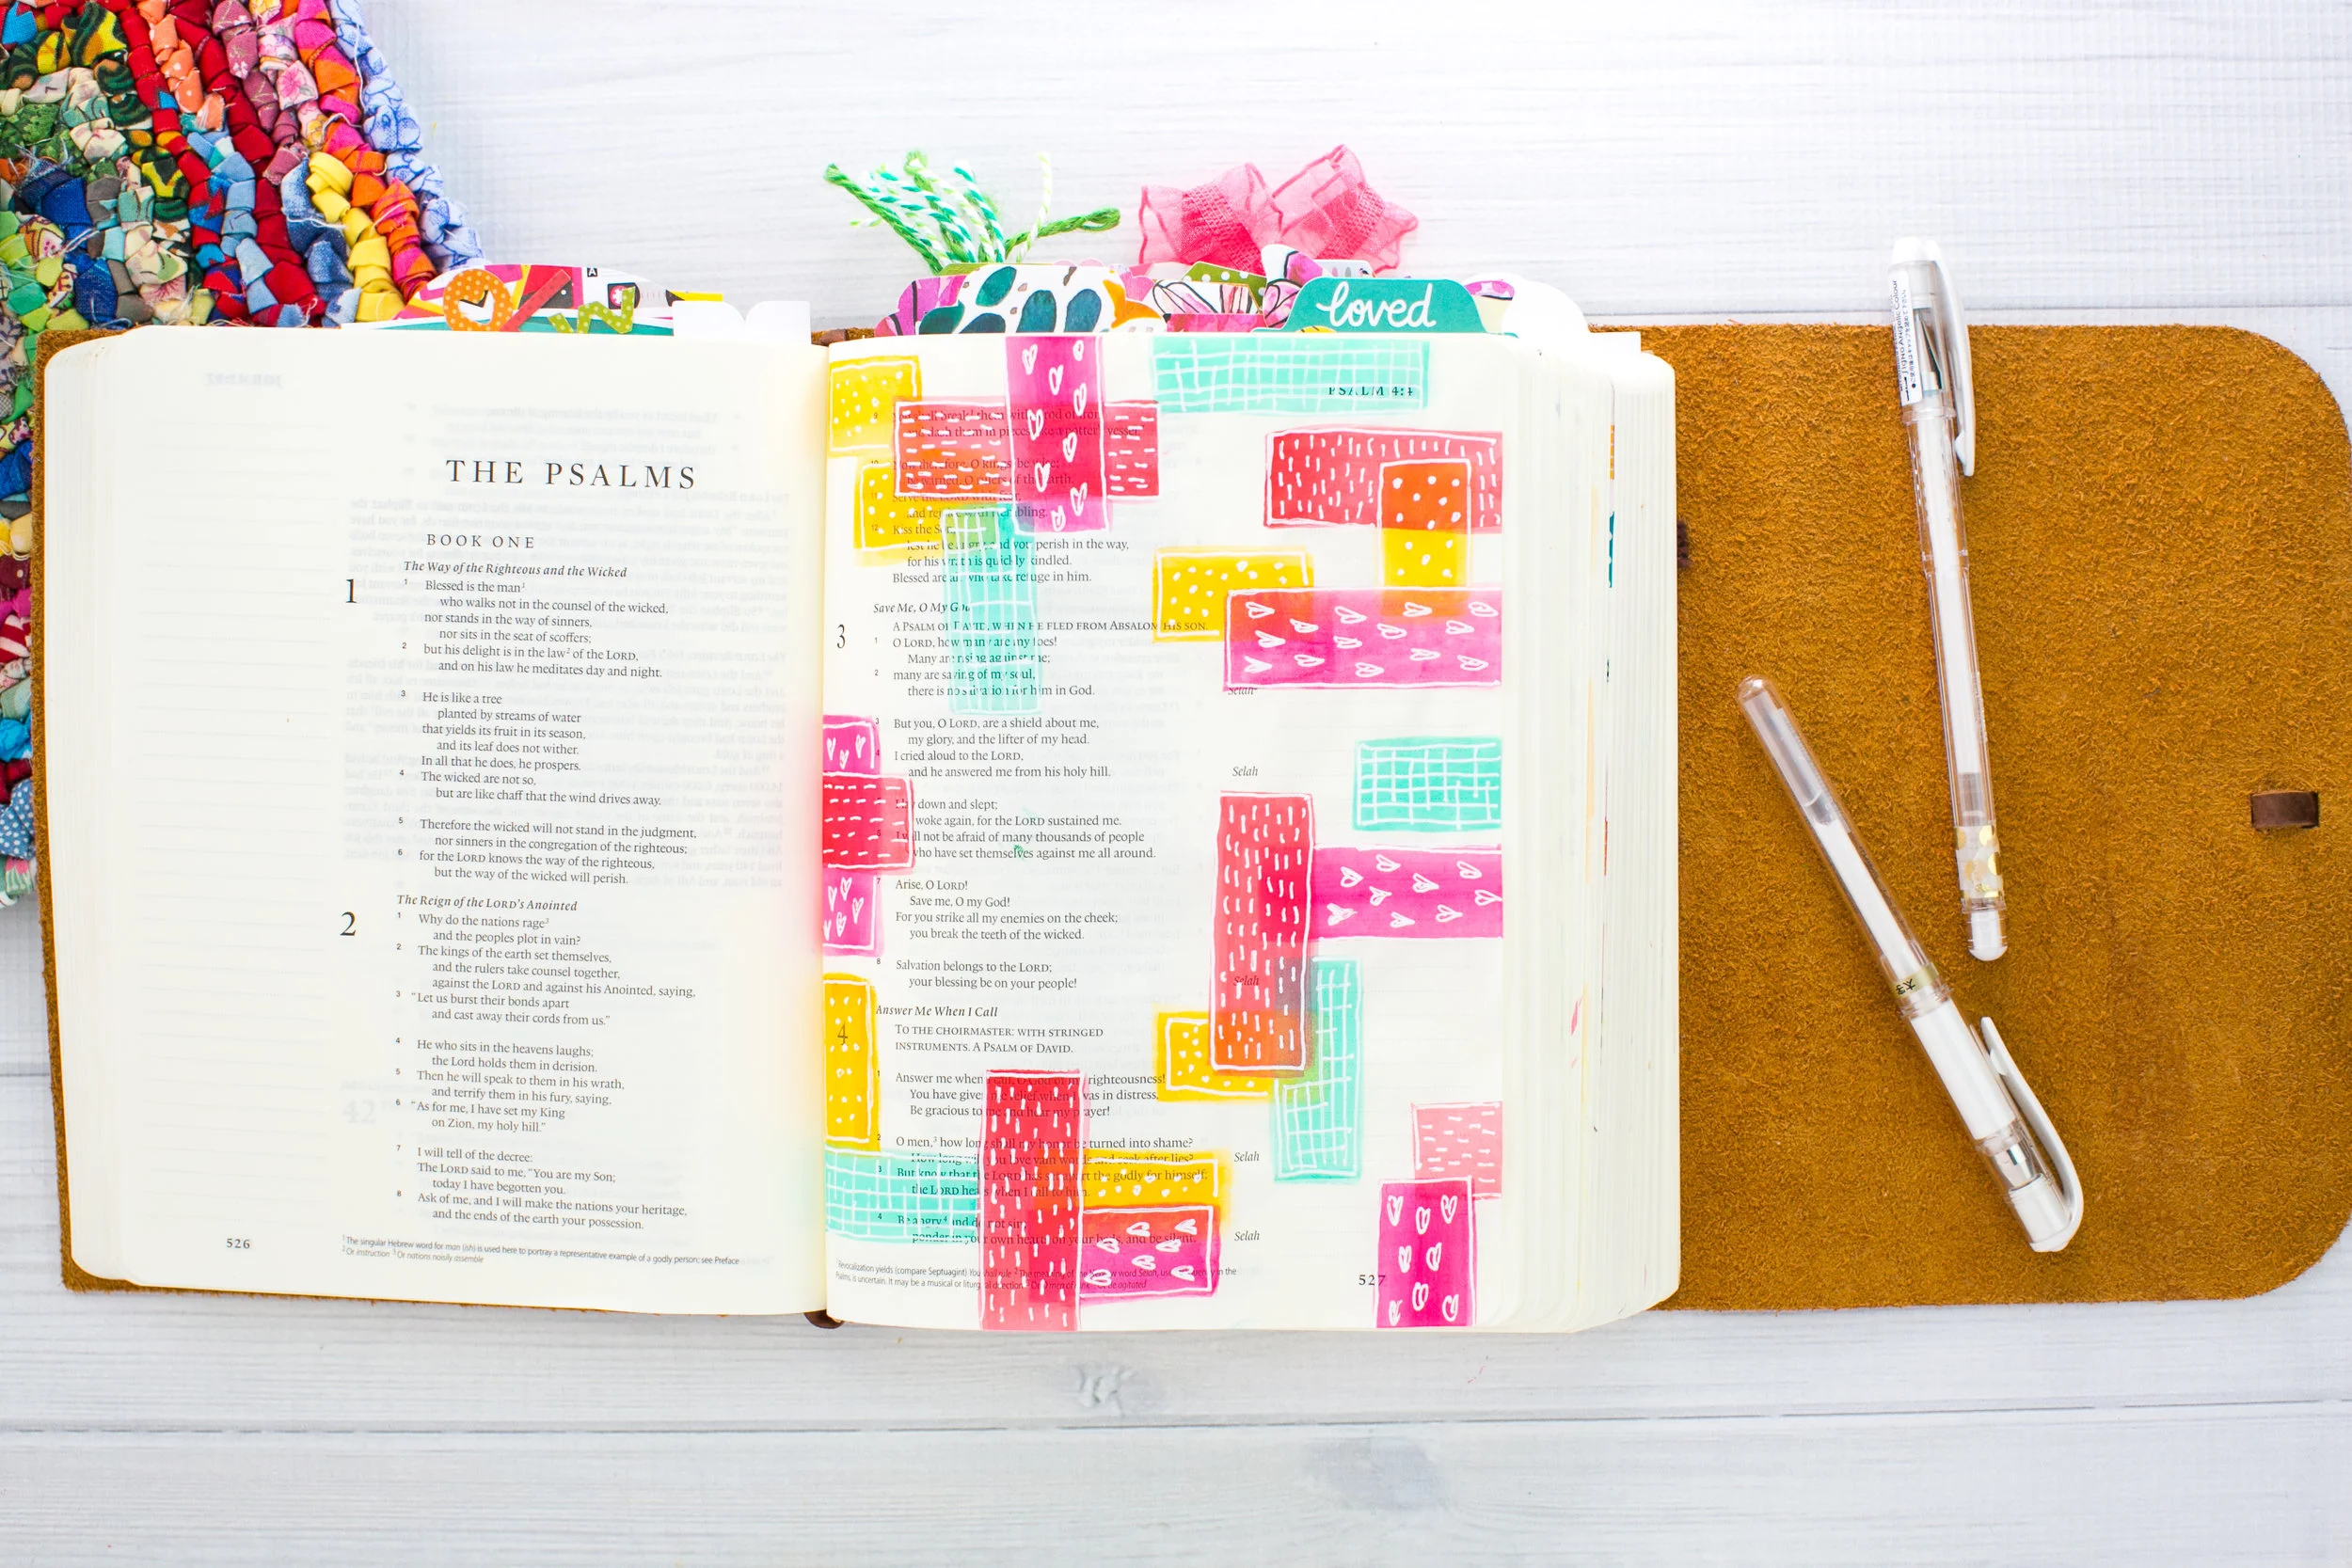 loved
THE PSALMS
BOOK ONE
The Way of the Righteous and the Wicked
1
1 Blessed is the man1
who walks not in the counsel of the wicked,
nor stands in the way of sinners,
nor sits in the seat of scoffers;
2 but his delight is in the law2 of the LORD,
and on his law he meditates day and night.
3 He is like a tree
planted by streams of water
that yields its fruit in its season,
and its leaf does not wither.
In all that he does, he prospers.
4 The wicked are not so,
but are like chaff that the wind drives away.
5 Therefore the wicked will not stand in the judgment,
nor sinners in the congregation of the righteous;
6 for the LORD knows the way of the righteous,
but the way of the wicked will perish.
The Reign of the LORD's Anointed
2
1 Why do the nations rage3
and the peoples plot in vain?
2 The kings of the earth set themselves,
and the rulers take counsel together,
against the LORD and against his Anointed, saying,
3 “Let us burst their bonds apart
and cast away their cords from us.”
4 He who sits in the heavens laughs;
the Lord holds them in derision.
5 Then he will speak to them in his wrath,
and terrify them in his fury, saying,
6 “As for me, I have set my King
on Zion, my holy hill.”
7 I will tell of the decree:
The LORD said to me, “You are my Son;
today I have begotten you.
8 Ask of me, and I will make the nations your heritage,
and the ends of the earth your possession.
526
1 The singular Hebrew word for man (ish) is used here to portray a representative example of a godly person; see Preface
2 Or instruction 3 Or nations noisily assemble
PSALM 4:4
9 shall break them with rod of iron
dash them in pieces like a potter's vessel.”
10 Now therefore, O kings, be wise;
be warned, O rulers of the earth.
11 Serve the LORD with fear,
and rejoice with trembling.
12 Kiss the Son,
lest he be angry, and you perish in the way,
for his wrath is quickly kindled.
Blessed are all who take refuge in him.
Save Me, O My God
3
A PSALM OF DAVID, WHEN HE FLED FROM ABSALOM HIS SON.
1 O LORD, how many are my foes!
Many are rising against me;
2 many are saying of my soul,
there is no salvation for him in God. Selah
3 But you, O LORD, are a shield about me,
my glory, and the lifter of my head.
4 I cried aloud to the LORD,
and he answered me from his holy hill. Selah
down and slept;
woke again, for the LORD sustained me.
6 I will not be afraid of many thousands of people
who have set themselves against me all around.
7 Arise, O LORD!
Save me, O my God!
For you strike all my enemies on the cheek;
you break the teeth of the wicked.
8 Salvation belongs to the LORD;
your blessing be on your people! Selah
Answer Me When I Call
4
TO THE CHOIRMASTER: WITH STRINGED
INSTRUMENTS. A PSALM OF DAVID.
1 Answer me when I call, O God of my righteousness!
You have given me relief when I was in distress.
Be gracious to me and hear my prayer!
2 O men,3 how long shall my honor be turned into shame?
How long will you love vain words and seek after lies? Selah
3 But know that the LORD has set apart the godly for himself;
the LORD hears when I call to him.
4 Be angry,4 and do not sin;
ponder in your own hearts on your beds, and be silent. Selah
527